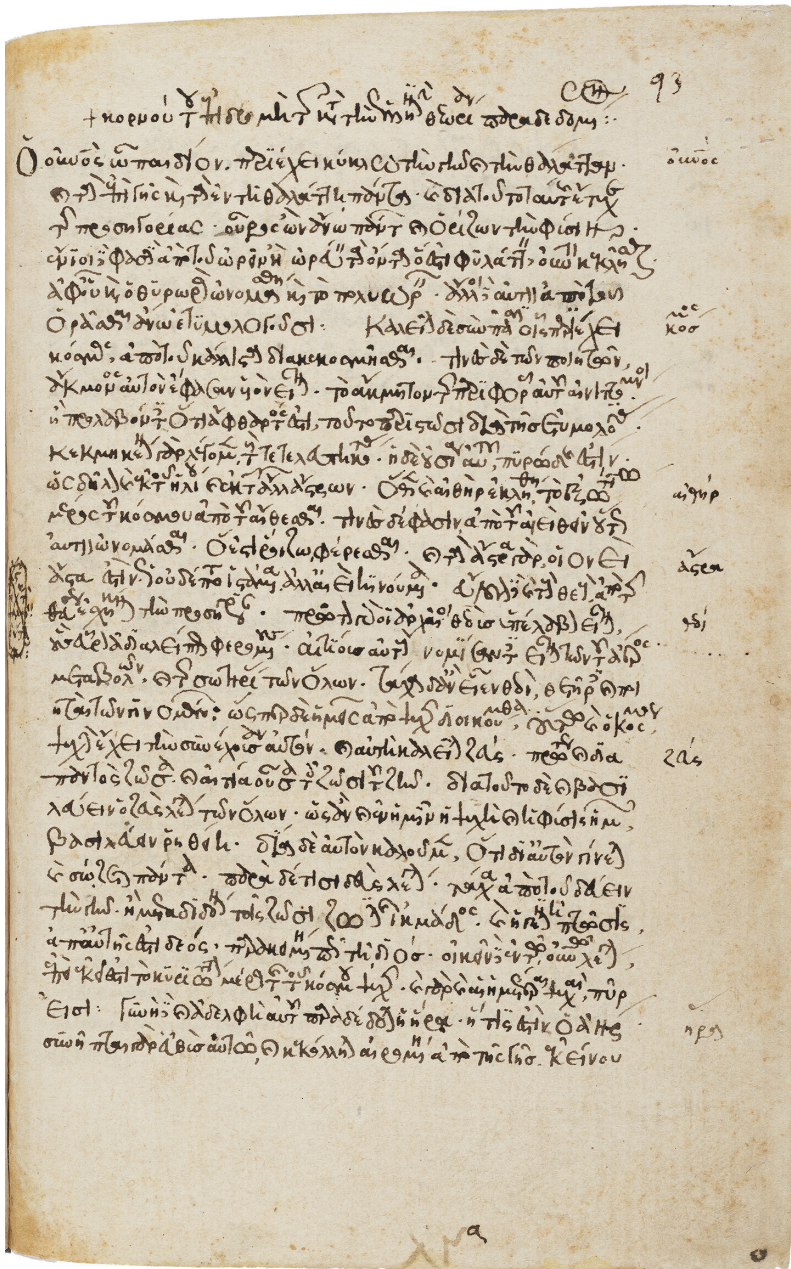 + κορνούτου ἐπιδρομὴ τῶν κατὰ τὴν ἑλληνικὴν θεωρίαν παραδεδομένων :· 93
Ὁ οὐνὸς ὦ παιδίον, περιέχει κύκλῳ τὴν γῆν καὶ τὴν θάλατταν · οὐνὸς
καὶ τὰ ἐπὶ γῆς καὶ τὰ ἐν τῇ θαλάττῃ πάντα · καὶ διὰ τοῦτο ταύτης ἔτυχε
τῆς προσηγορίας · οὖρος ὢν ἄνω πάντων καὶ ὁρίζων τὴν φύσιν ·
ἔνιοι δὲ φασὶν ἀπὸ τοῦ ὠρεῖν ἢ ὠρεύειν τὰ ὄντα ὅ ἐστι φυλάττειν, οὐνὸν κεκλῆσθαι ·
ἀφ' οὗ καὶ ὁ θυρωρὸς ὠνομάσθη καὶ τὸ πολυωρεῖν · ἄλλοι δὲ αὐτὸν ἀπὸ τοῦ
ὁρᾶσθαι ἄνω ἐτυμολογοῦσι : καλεῖται δὲ σὺν πᾶσιν οἷς περιέχει κόσμος
κόσμος, ἀπὸ τοῦ κάλλιστα διακεκοσμῆσθαι · τινὲς δὲ τῶν ποιητῶν,
ἄκμονος αὐτὸν ἔφασαν υἱὸν εἶναι · τὸ ἄκμητον τῆς περιφορᾶς αὐτοῦ αἰνιττόμενοι ·
ἢ προλαβόντες ὅτι ἄφθαρτός ἐστι, τοῦτο παριστῶσι διὰ τῆς ἐτυμολογίας ·
κεκμηκέναι γὰρ λέγομεν, τοὺς τετελευτηκότας · ἡ δὲ οὐσία αὐτοῦ, πυρώδης ἐστίν ·
ὡς δῆλον ἐκ τοῦ ἡλίου καὶ ἐκ τῶν ἄλλων ἄστρων · ὅθεν καὶ αἰθὴρ ἐκλήθη, τὸ ἐξωτάτω αἰθήρ
μέρος τοῦ κόσμου ἀπὸ τοῦ αἴθεσθαι · τινὲς δέ φασιν, ἀπὸ τοῦ ἀεὶ θεῖν οὕτως
αὐτὸν ὠνομάσθαι · ὅ ἐστι ῥοίζῳ φέρεσθαι · καὶ τὰ ἄστρα γὰρ, οἱονεὶ ἄστρα
ἄστατά ἐστιν ὡς οὐδέποτε ἱστάμενα, ἀλλ' ἀεὶ κινούμενα · εὔλογον δὲ καὶ τοὺς θεοὺς, ἀπὸ τῆς
θεύσεως ἐσχηκέναι τὴν προσηγορίαν · πρῶτον γὰρ οἱ ἀρχαῖοι θεοὺς ὑπελάμβανον εἶναι, θεοί
οὓς ἑώρων ἀδιαλείπτως φερομένους · αἰτίους αὐτοὺς νομίσαντες εἶναι τῶν τοῦ ἀέρος
μεταβολῶν · καὶ τῆς σωτηρίας τῶν ὅλων · τάχα δ' ἂν εἶεν θεοὶ, θετῆρες καὶ ποι
ηταὶ τῶν γινομένων : ὥσπερ δὲ ἡμεῖς ἀπὸ ψυχῆς διοικούμεθα, οὕτω καὶ ὁ κόσμος,
ψυχὴν ἔχει τὴν συνέχουσαν αὐτόν · καὶ αὕτη καλεῖται ζεύς · πρώτως καὶ διὰ ζεύς
παντὸς ζῶσα · καὶ αἰτία οὖσα τοῖς ζῶσι τοῦ ζῆν · διὰ τοῦτο δὲ καὶ βασι
λεύειν ὁ ζεὺς λέγεται τῶν ὅλων · ὡς ἂν καὶ ἐν ἡμῖν ἡ ψυχὴ καὶ ἡ φύσις ἡμῶν,
βασιλεύειν ῥηθείη · δία δὲ αὐτὸν καλοῦμεν, ὅτι δι' αὐτὸν γίνεται
καὶ σώζεται πάντα · παρὰ δέ τισι δεὺς λέγεται · τάχα ἀπὸ τοῦ δεύειν
τὴν γῆν · ἢ μεταδιδόναι τοῖς ζῶσι ζωτικῆς ἰκμάδος · καὶ ἡ γενικὴ πτῶσις,
ἀπ' αὐτῆς ἐστι δεός · παρακειμένη πως τῇ διός · οἰκεῖν δὲ ἐν τῷ οὐνῷ λέγεται,
ἐπεὶ ἐκεῖ ἐστι τὸ κυριώτατον μέρος τῆς τοῦ κόσμου ψυχῆς · καὶ γὰρ καὶ αἱ ἡμέτεραι ψυχαὶ, πῦρ
εἰσι : Γυνὴ δὲ καὶ ἀδελφὴ αὐτοῦ παραδέδοται ἡ ἥρα · ἥτις ἐστὶν ὁ ἀήρ · ἥρα
συνῆπται γὰρ εὐθὺς αὐτῷ, καὶ κεκόλληται αἰρομένη ἀπὸ τῆς γῆς · ἐκείνου
α